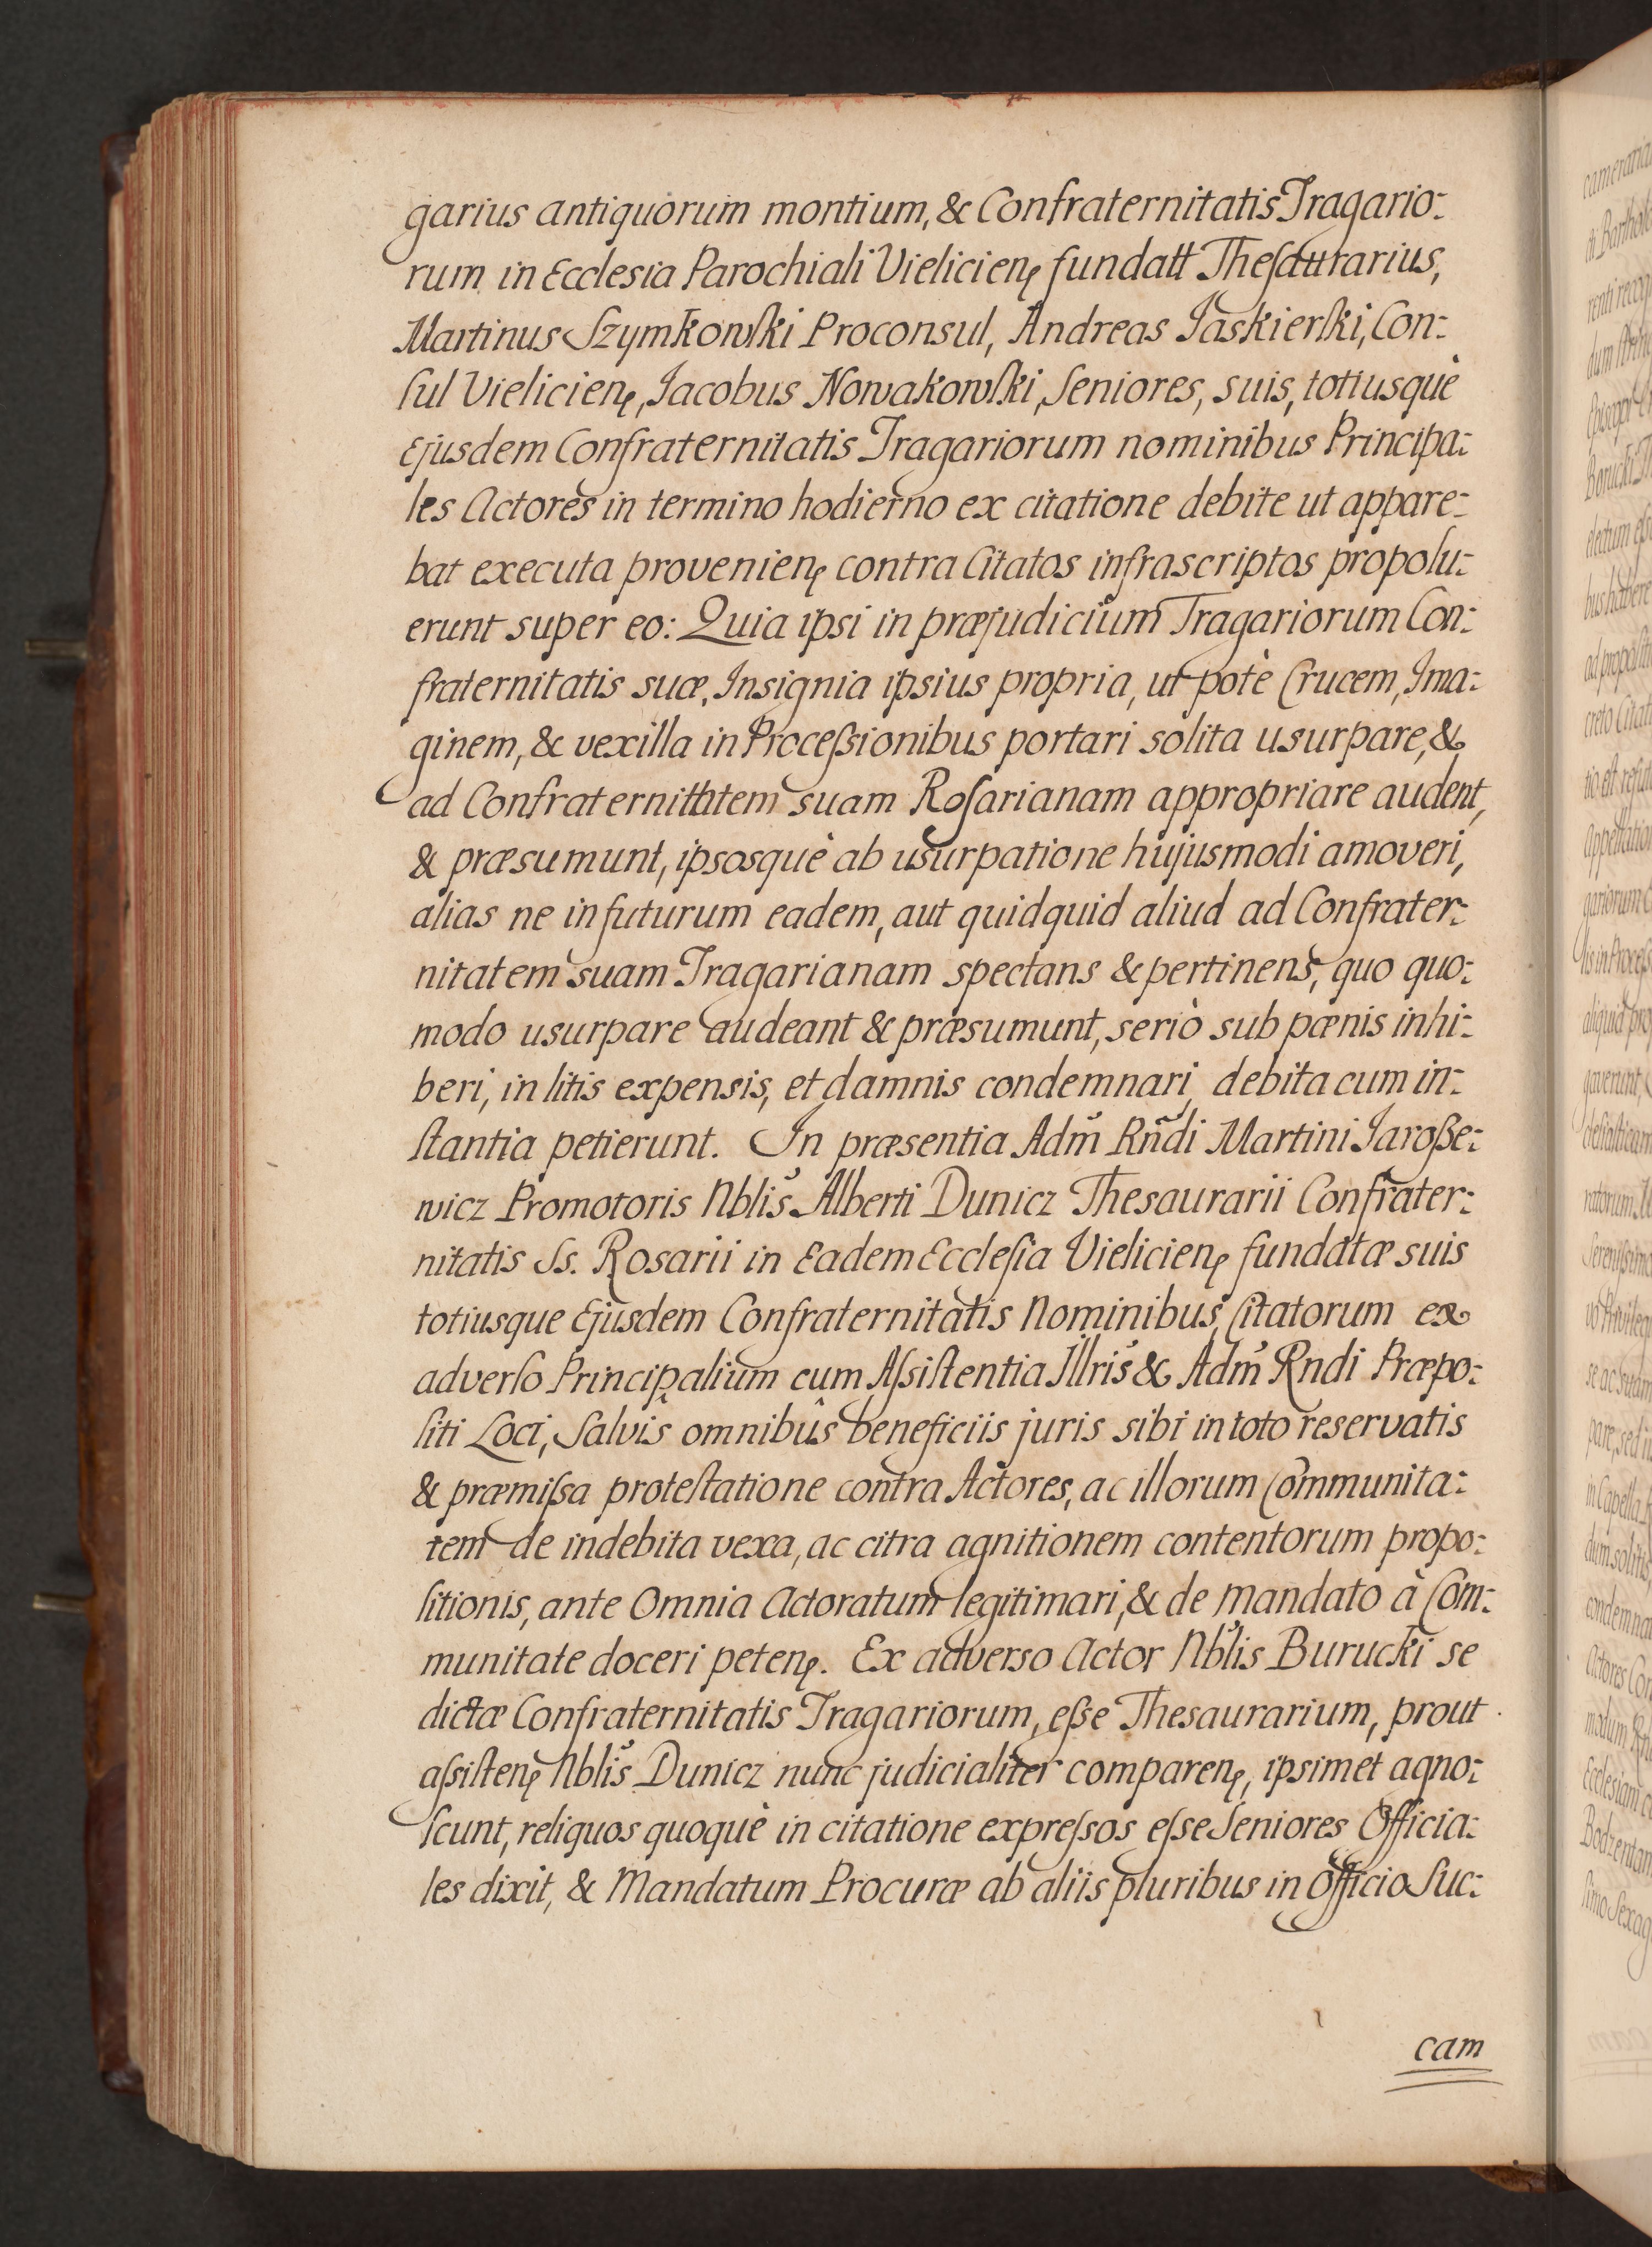 garius antiquorum montium, & Confraternitatis Tragario:
rum in Ecclesia Parochiali Vielicienę fundatt Theſaurarius,
Martinus Szymkowſki Proconsul, Andreas Jaskierſki, Con:
ſul Vielicienę, Jacobus Nowakowſki, Seniores, suis, totiusquè
Ejusdem Confraternitatis Tragariorum nominibus Principa:
les Actores in termino hodierno ex citatione debite ut appare:
bat executa provenienę contra Citatos infrascriptos propoſu:
erunt super eo: Quia ipsi in præjudicium Tragariorum Con:
fraternitatis suæ, Insignia ipsius propria, ut potè Crucem, Ima:
ginem, & vexilla in Proceſsionibus portari solita usurpare, &
ad Confraternitatem suam Roſarianam appropriare audent,
& præsumunt, ipsosquè ab usurpatione hujusmodi amoveri,
alias ne in futurum eadem, aut quidquid aliud ad Confrater:
nitatem suam Tragarianam spectans & pertinens, quo quo:
modo usurpare audeant & præsumunt, seriò sub pænis inhi:
beri, in litis expensis, et damnis condemnari, debita cum in:
ſtantia petierunt. In præsentia Adm̃ Rñdi Martini Jaroße:
wicz Promotoris Nblis Alberti Dunicz Thesaurarii Confrater:
nitatis Ss. Rosarii in Eadem Eccleſia Vielicienę fundatæ suis
totiusque Ejusdem Confraternitatis Nominibus, Citatorum ex
adverſo Principalium cum Aſsiſtentia Illris & Adm̃ Rndi Præpo:
ſiti Loci, Salvis omnibûs beneficiis juris sibi in toto reservatis
& præmiſsa proteſtatione contra Actores, ac illorum Communita:
tem de indebita vexa, ac citra agnitionem contentorum propo:
ſitionis, ante Omnia Actoratum legitimari, & de mandato à Com:
munitate doceri petenę. Ex adverso Actor Nblis Burucki se
dictæ Confraternitatis Tragariorum, eſse Thesaurarium, prout
aſsiſtenę Nblis Dunicz nunc judicialiter comparenę, ipsimet agno:
ſcunt, reliquos quoquè in citatione expreſsos eſse Seniores Officia:
les dixit, & Mandatum Procuræ ab aliis pluribus in Officio Suc:
cam